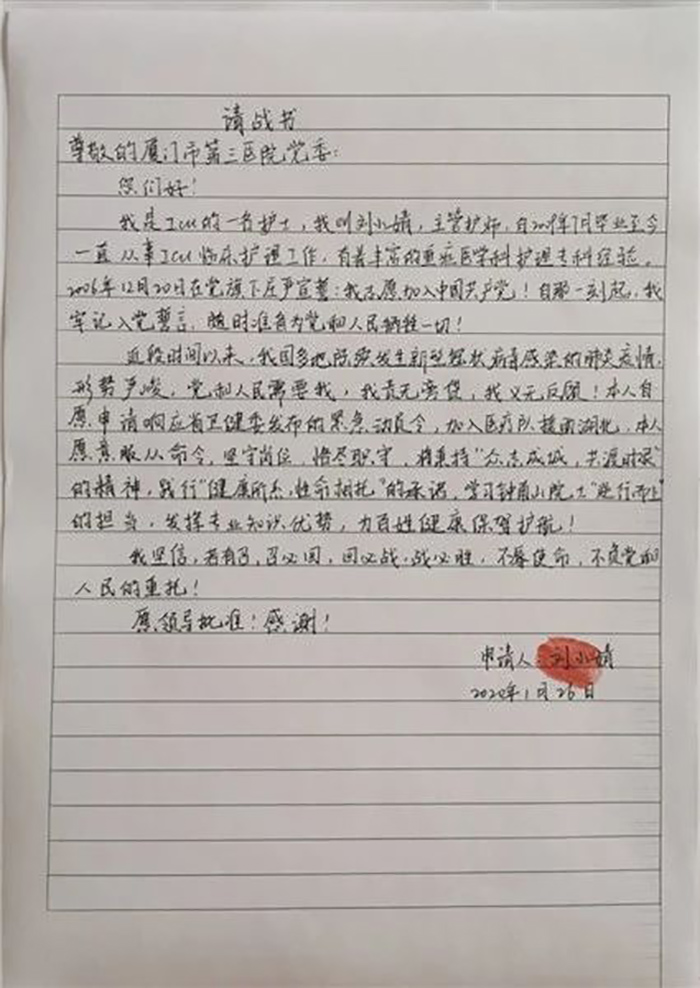 请战书
尊敬的厦门市第三医院党委:
您们好!
我是ICU的一名护士,我叫刘小娟,主管护师,自2009年7月毕业至今
一直从事ICU临床护理工作,有着丰富的重症医学科护理专科经验。
2006年12月20日在党旗下庄严宣誓:我志愿加入中国共产党!自那一刻起,我
牢记入党誓言,随时准备为党和人民牺牲一切!
近段时间以来,我国多地陆续发生新型冠状病毒感染的肺炎疫情,
形势严峻,党和人民需要我,我责无旁贷,我义无反顾!本人自
愿申请响应省卫健委发布的紧急动员令,加入医疗队援助湖北,本人
愿意服从命令,坚守岗位,恪尽职守,将秉持"众志成城,共渡时艰"
的精神,践行"健康所系,性命相托"的承诺,学习钟南山院士"逆行而上"
的担当,发挥专业知识优势,为百姓健康保驾护航!
我坚信,若有召,召必回,回必战,战必胜,不辱使命,不负党和
人民的重托!
愿领导批准!感谢!
申请人:刘小娟
2020年1月26日